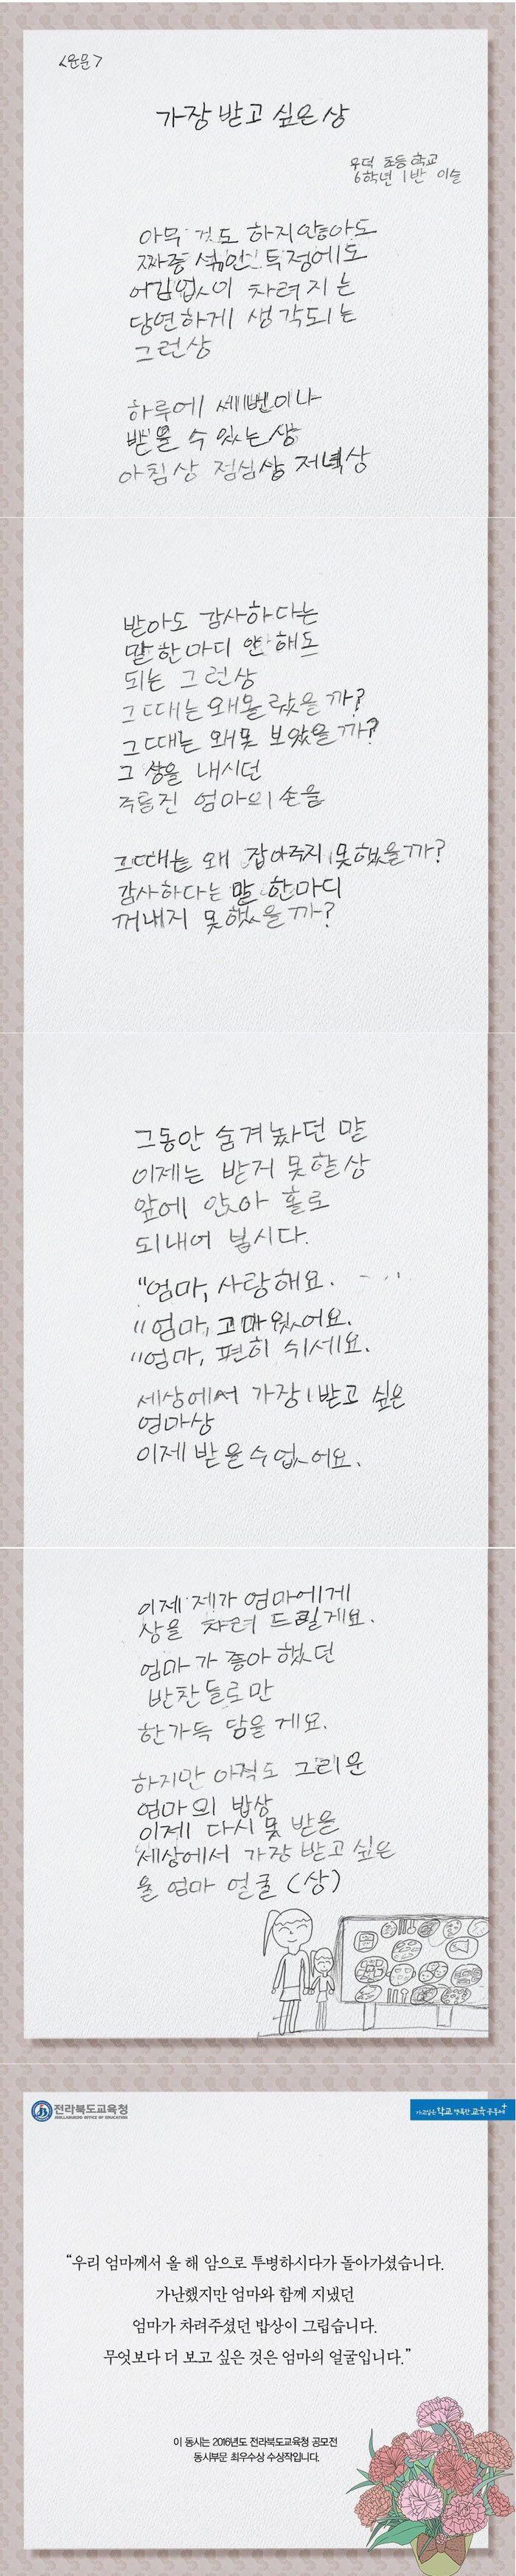 <운문>
가장 받고 싶은 상
우덕 초등학교
6학년 1반 이슬
아무 것도 하지않아도
짜증 섞인 투정에도
어김없이 차려지는
당연하게 생각되는
그런상
하루에 세번이나
받을 수 있는상
아침상 점심상 저녁상
받아도 감사하다는
말 한마디 안 해도
되는 그런상
그때는 왜몰랐을까?
그때는 왜못 보았을까?
그 상을 내시던
주름진 엄마의 손을
그때는 왜 잡아주지 못했을까?
감사하다는 말 한마디
꺼내지 못했을까?
그동안 숨겨놨던 말
이제는 받지 못할상
앞에 앉아 홀로
되내어 봅시다.
"엄마, 사랑해요.
"엄마, 고마웠어요.
"엄마, 편히 쉬세요.
세상에서 가장 받고 싶은
엄마상
이제 받을수없어요.
이제 제가 엄마에게
상을 차려 드릴게요.
엄마가 좋아했던
반찬들로만
한가득 담을게요.
하지만 아직도 그리운
엄마의 밥상
이제 다시 못 받을
세상에서 가장 받고 싶은
울 엄마 얼굴 (상)
전라북도교육청
JEOLLABUKDO OFFICE OF EDUCATION
가고싶은 학교 행복한 교육공동체
"우리 엄마께서 올 해 암으로 투병하시다가 돌아가셨습니다.
가난했지만 엄마와 함께 지냈던
엄마가 차려주셨던 밥상이 그립습니다.
무엇보다 더 보고 싶은 것은 엄마의 얼굴입니다."
이 동시는 2016년도 전라북도교육청 공모전
동시부문 최우수상 수상작입니다.